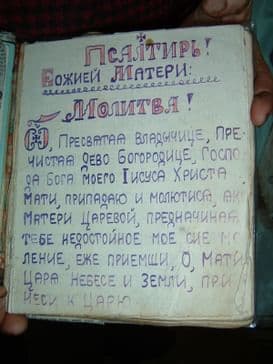 Псалтирь!
Божией Матери:
Молитва!
Ѽ, Пресватаа Владычице, Пре-
чистаа Дево Богородице, Госпо-
да Бога моего Іисуса Христа
Мати, припадаю и молютиса, ак
Матери Царевой, предначиная
тебе недостойное мое сие мо
ление, еже приемши, О, Мати
Цара Небесе и Земли, при
неси к Царю